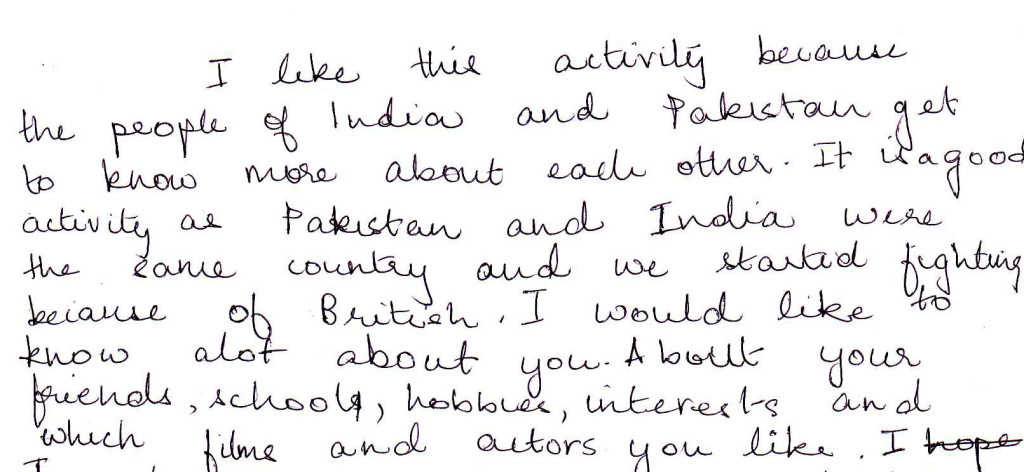 I like this activity because
the people of India and Pakistan get
to know more about each other. It is a good
activity as Pakistan and India were
the same country and we started fighting
because of British. I would like to
know alot about you. About your
friends, schools, hobbies, interests and
which films and actors you like. I hope
I